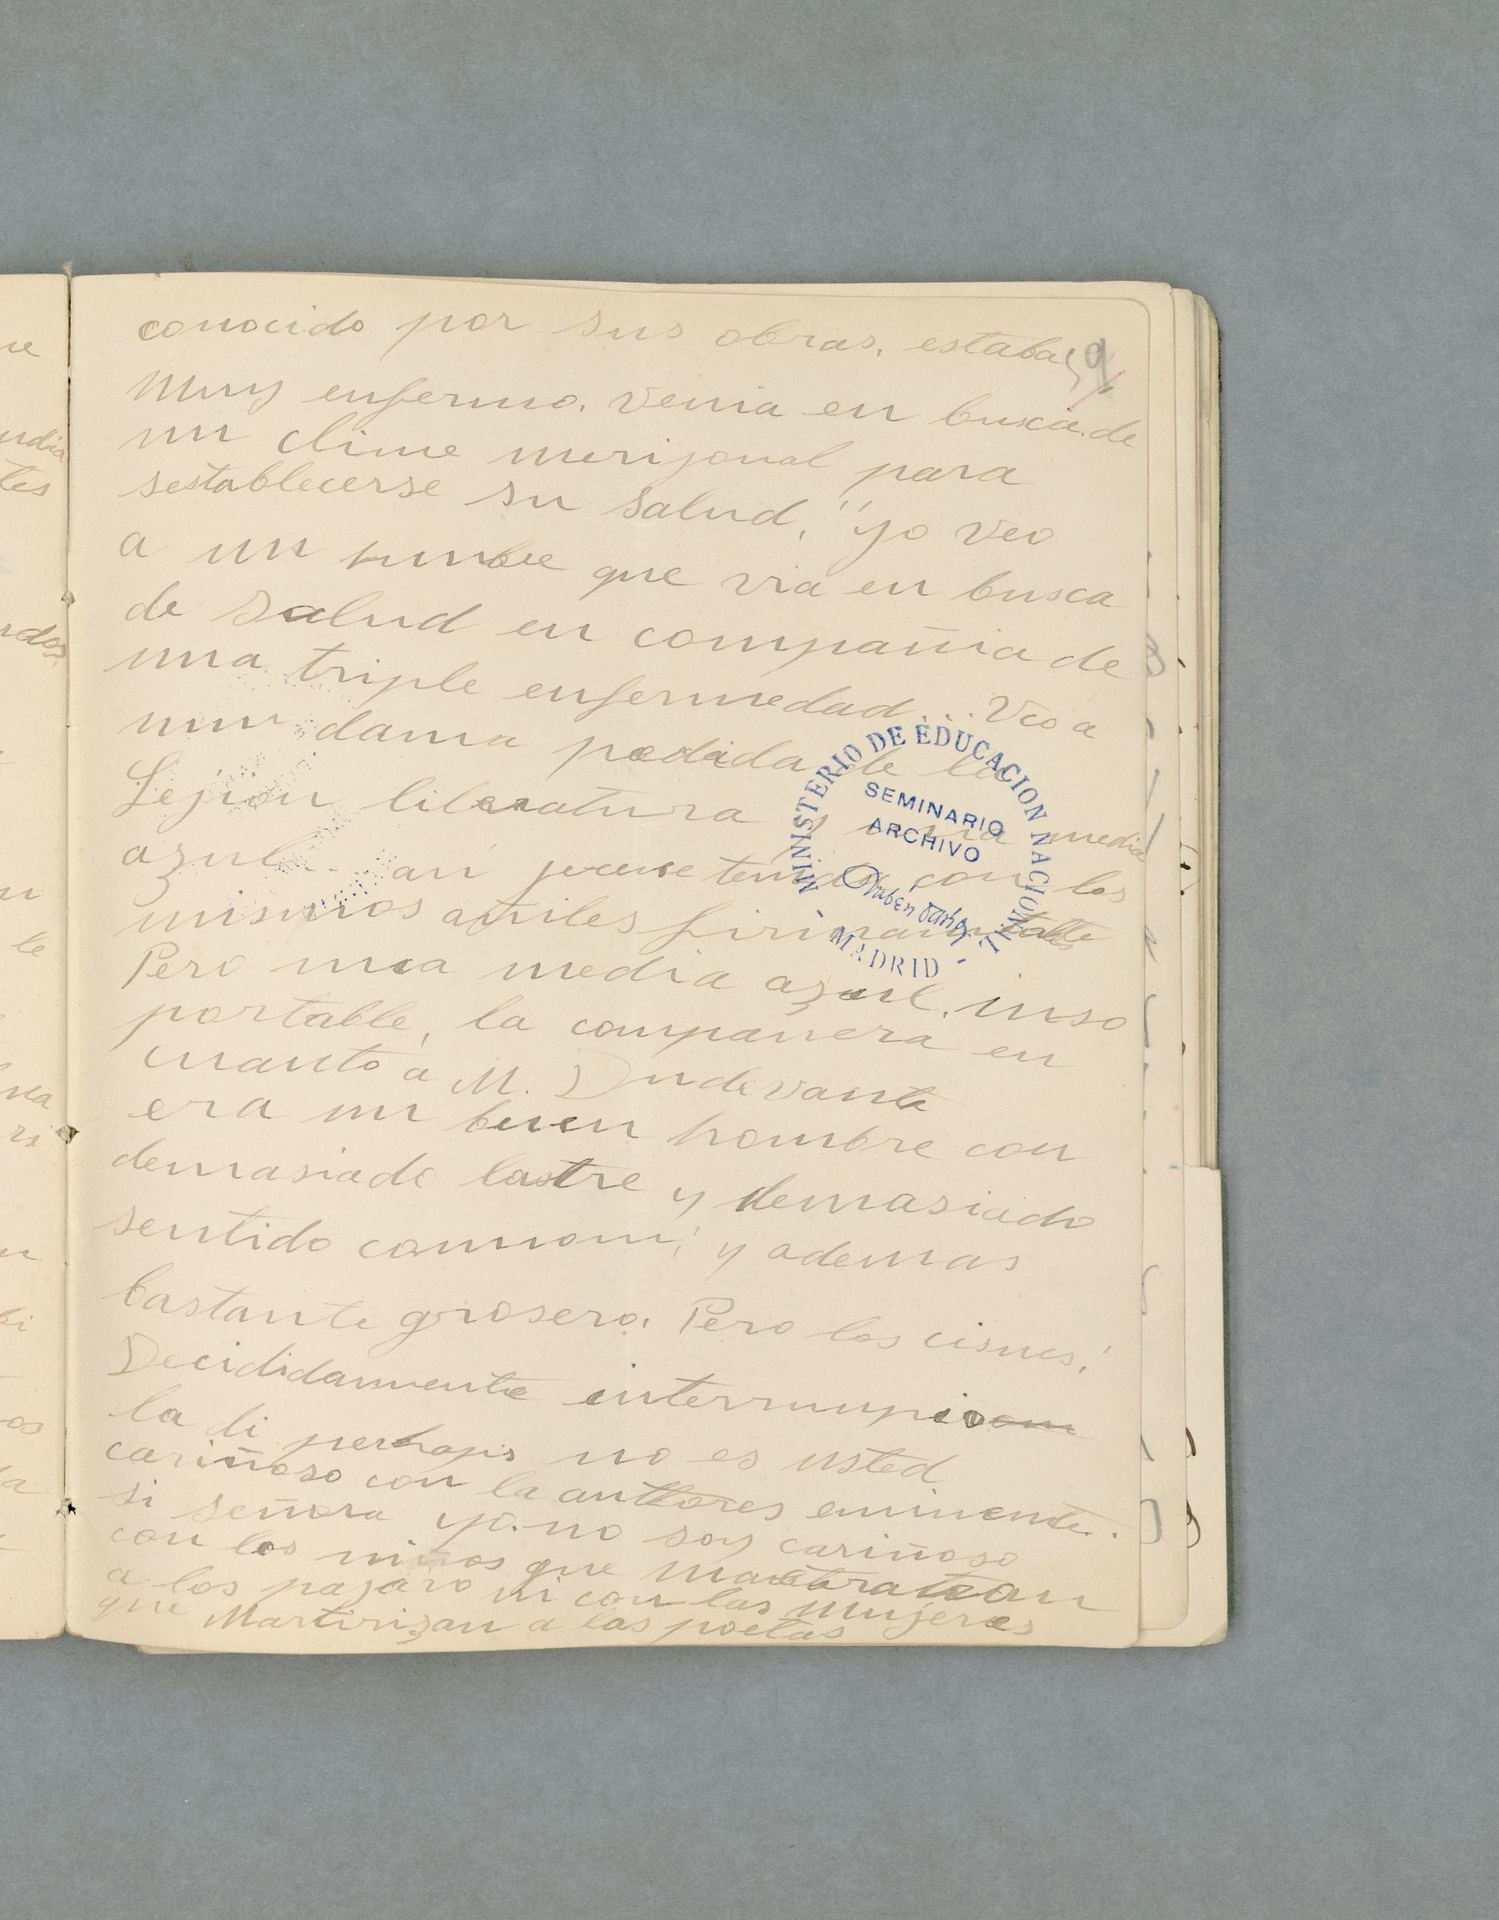 conocido por sus obras, estaba
9
muy enfermo. Venia en busca de
un clime merijonal para
sestablecerse su salud, "yo veo
a un que via en busca
de salud en compañia de
una triple enfermedad... Veo a
dama de la
Lejion literatura y media
azul.. con los
mismos añiles
Pero una media azul, inso
portable, la compañera en
cuanto a M. Dudevante
era un buen hombre con
demasiado lastre y demasiado
sentido ; y ademas
bastante grosero. Pero los cisnes!
Decididamente interrumpio
la li perhaps no es usted
cariñoso con la auttores eminente.
si señora yo no soy cariñoso
con los niños que maltratan
a los pajaro ni con las mujeres
que Martirizan a las poetas
MINISTERIO DE EDUCACION NACIONAL
SEMINARIO
ARCHIVO
Rubén Darío
- MADRID -